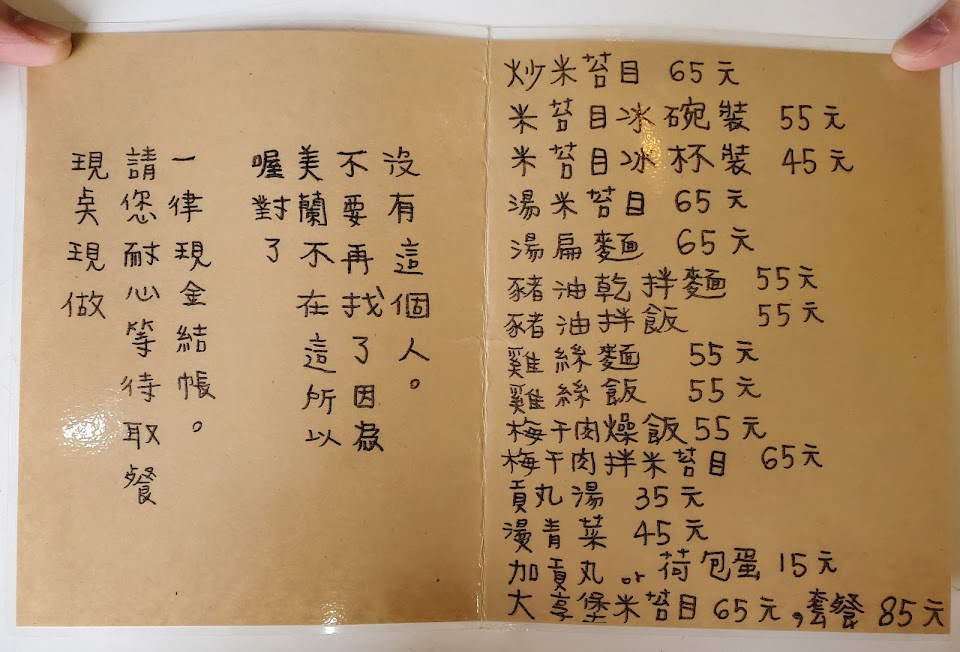 現奌現做
請您耐心等待取餐
一律現金結帳。
喔對了
美蘭不在這所以
不要再找了因為
沒有這個人。
炒米苔目 65元
米苔目冰碗裝 55元
米苔目冰杯裝 45元
湯米苔目 65元
湯扁麵 65元
豬油乾拌麵 55元
豬油拌飯 55元
雞絲麵 55元
雞絲飯 55元
梅干肉燥飯 55元
梅干肉拌米苔目 65元
貢丸湯 35元
漫青菜 45元
加貢丸 or 荷包蛋 15元
大亨堡米苔目 65元，套餐 85元